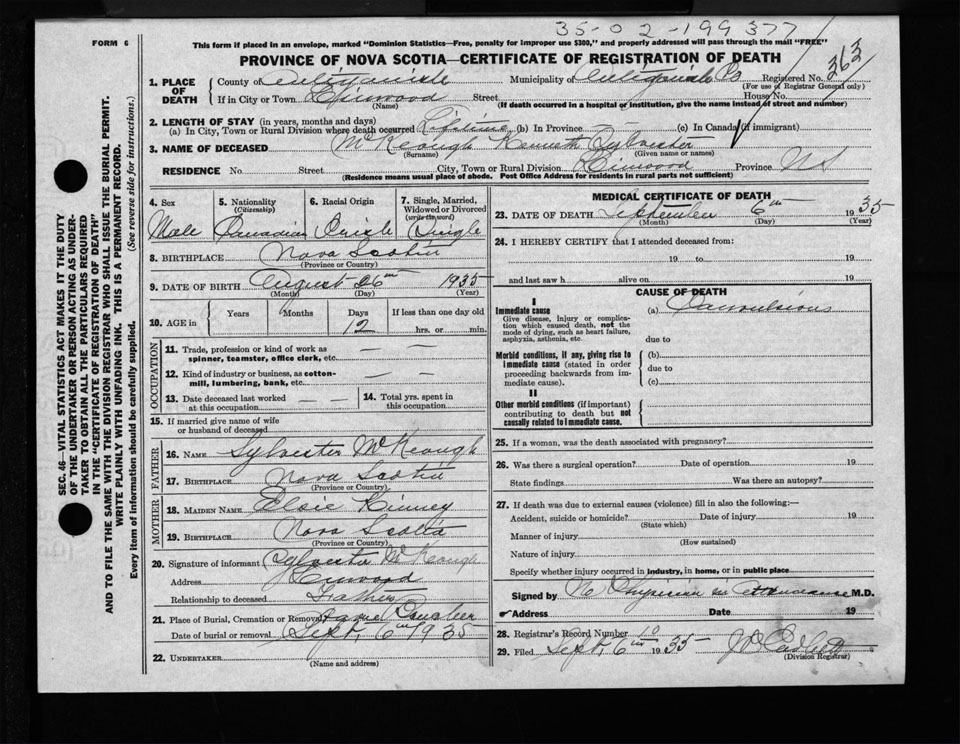 35-02-199377
FORM 6
This form if placed in an envelope, marked "Dominion Statistics—Free, penalty for improper use $300," and properly addressed will pass through the mail "FREE"
PROVINCE OF NOVA SCOTIA—CERTIFICATE OF REGISTRATION OF DEATH
363
1. PLACE OF DEATH County of Antigonish Municipality of Antigonish Co Registered No.
(For use of Registrar General only)
If in City or Town Linwood Street House No.
(Name) (If death occurred in a hospital or institution, give the name instead of street and number)
2. LENGTH OF STAY (in years, months and days)
(a) In City, Town or Rural Division where death occurred Lifetime (b) In Province — — (c) In Canada (if immigrant)
3. NAME OF DECEASED McKeough Kenneth Sylvester
(Surname) (Given name or names)
RESIDENCE No. Street City, Town or Rural Division Linwood Province NS
(Residence means usual place of abode. Post Office Address for residents in rural parts not sufficient)
4. Sex Male
5. Nationality (Citizenship) Canadian
6. Racial Origin Irish
7. Single, Married, Widowed or Divorced (write the word) Single
8. BIRTHPLACE Nova Scotia
(Province or Country)
9. DATE OF BIRTH August 26th 1935
(Month) (Day) (Year)
10. AGE in Years Months Days 12 If less than one day old hrs. or min.
OCCUPATION
11. Trade, profession or kind of work as spinner, teamster, office clerk, etc. — —
12. Kind of industry or business, as cotton-mill, lumbering, bank, etc. — —
13. Date deceased last worked at this occupation — —
14. Total yrs. spent in this occupation —
15. If married give name of wife or husband of deceased
FATHER
16. NAME Sylvester McKeough
17. BIRTHPLACE Nova Scotia
(Province or Country)
MOTHER
18. MAIDEN NAME Elsie Kinney
19. BIRTHPLACE Nova Scotia
(Province or Country)
20. Signature of informant Sylvester McKeough
Address Linwood
Relationship to deceased Father
21. Place of Burial, Cremation or Removal
Date of burial or removal Sept. 6th 1935
22. UNDERTAKER
(Name and address)
MEDICAL CERTIFICATE OF DEATH
23. DATE OF DEATH September 6th 1935
(Month) (Day) (Year)
24. I HEREBY CERTIFY that I attended deceased from:
19 to 19
and last saw h alive on 19
CAUSE OF DEATH
I
Immediate cause
Give disease, injury or complication which caused death, not the mode of dying, such as heart failure, asphyxia, asthenia, etc.
(a) Convulsions
due to
Morbid conditions, if any, giving rise to immediate cause (stated in order proceeding backwards from immediate cause).
(b)
due to
(c)
II
Other morbid conditions (if important) contributing to death but not causally related to immediate cause.
25. If a woman, was the death associated with pregnancy?
26. Was there a surgical operation? Date of operation 19
State findings Was there an autopsy?
27. If death was due to external causes (violence) fill in also the following:—
Accident, suicide or homicide? Date of injury 19
(State which)
Manner of injury
(How sustained)
Nature of injury
Specify whether injury occurred in industry, in home, or in public place
Signed by No Physician in attendance M.D.
Address Date 19
28. Registrar's Record Number 10
29. Filed Sept. 6th 1935
(Division Registrar)
SEC. 46—VITAL STATISTICS ACT MAKES IT THE DUTY
OF THE UNDERTAKER OR PERSON ACTING AS UNDER-
TAKER TO OBTAIN ALL THE PARTICULARS REQUIRED
IN THE "CERTIFICATE OF REGISTRATION OF DEATH"
AND TO FILE THE SAME WITH THE DIVISION REGISTRAR WHO SHALL ISSUE THE BURIAL PERMIT.
WRITE PLAINLY WITH UNFADING INK. THIS IS A PERMANENT RECORD.
Every item of information should be carefully supplied. (See reverse side for instructions.)